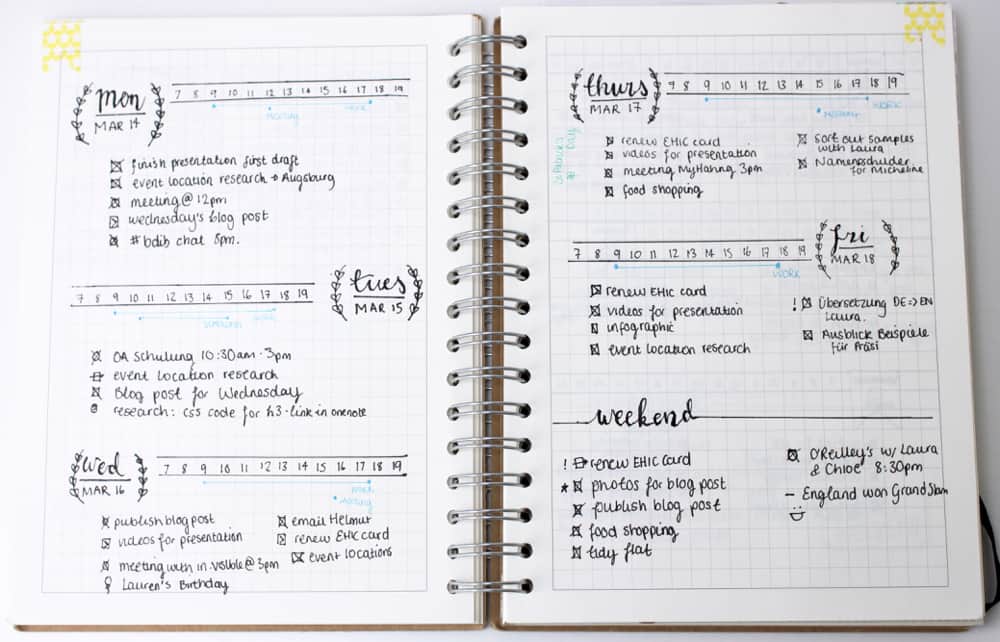 mon
MAR 14
7 8 9 10 11 12 13 14 15 16 17 18 19
MEETING
WORK
finish presentation first draft
event location research → Augsburg
meeting @ 12pm
wednesday's blog post
#bdib chat 8pm.
7 8 9 10 11 12 13 14 15 16 17 18 19
WORK
tues
MAR 15
OA Schulung 10:30am - 3pm
event location research
Blog post for Wednesday
research: css code for h3 - link in onenote
wed
MAR 16
7 8 9 10 11 12 13 14 15 16 17 18 19
WORK
MEETING
publish blog post
videos for presentation
meeting with in.visible @ 3pm
Lauren's Birthday
email Helmut
renew EHIC card
event locations
thurs
MAR 17
St Patricks Day
7 8 9 10 11 12 13 14 15 16 17 18 19
MEETING
WORK
renew EHIC card
videos for presentation
meeting MyHahng 3pm
food shopping
Sort out samples
with Laura
Namensschilder
for Micheline
7 8 9 10 11 12 13 14 15 16 17 18 19
WORK
fri
MAR 18
renew EHIC card
videos for presentation
infographic
event location research
! Übersetzung DE => EN
Laura.
Ausblick Beispiele
für Präsi
weekend
! renew EHIC card
* photos for blog post
publish blog post
food shopping
tidy flat
O'Reilley's w/ Laura
& Chloe 8:30pm
– England won Grand Slam